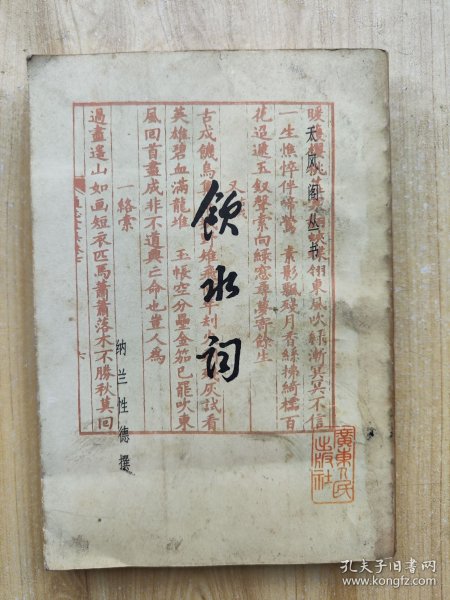 天风阁丛书
飲水词
纳兰性德撰
廣東人民
出版社
一生憔悴伴啼鶯 素影飄殘月香絲拂綺櫳百
花迢遞玉釵聲索向綠窓尋夢寄餘生
又
英雄碧血滿龍堆 玉帳空分壘金笳已罷吹東
風回首盡成非不道興亡命也豈人為
一絡索
過盡遙山如画短衣匹馬蕭蕭落木不勝秋莫回
孔夫子旧书网
www.kongfz.com